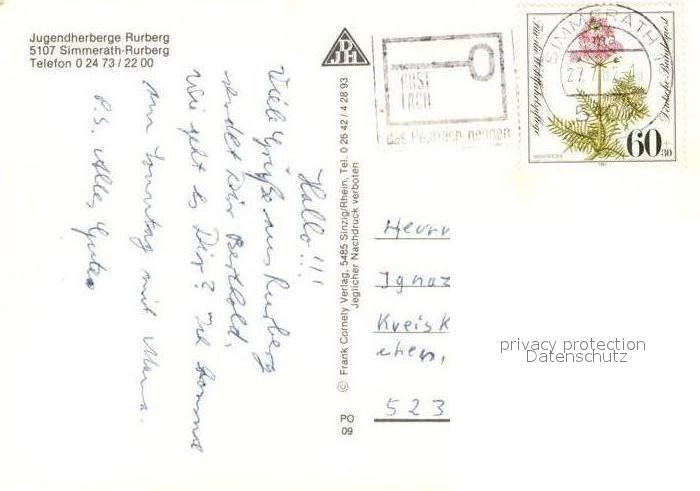 Jugendherberge Rurberg
5107 Simmerath-Rurberg
Telefon 0 24 73 / 22 00
JPH
Hallo!!!
Viele Grüße aus Rurberg
sendet Dir Berthold.
Wie geht es Dir? Ich komme
am Sonntag mit Mama.
P.S. Alles Gute
© Frank Cornely Verlag, 5485 Sinzig/Rhein, Tel. 0 26 42 / 4 28 93
Jeglicher Nachdruck verboten
PO
09
POST
FACH
das Postfach nennen
SIMMERATH 1
Für die Wohlfahrtspflege
Deutsche Bundespost
60
+30
Herrn
Ignaz
Kreisk
chen,
523
privacy protection
Datenschutz